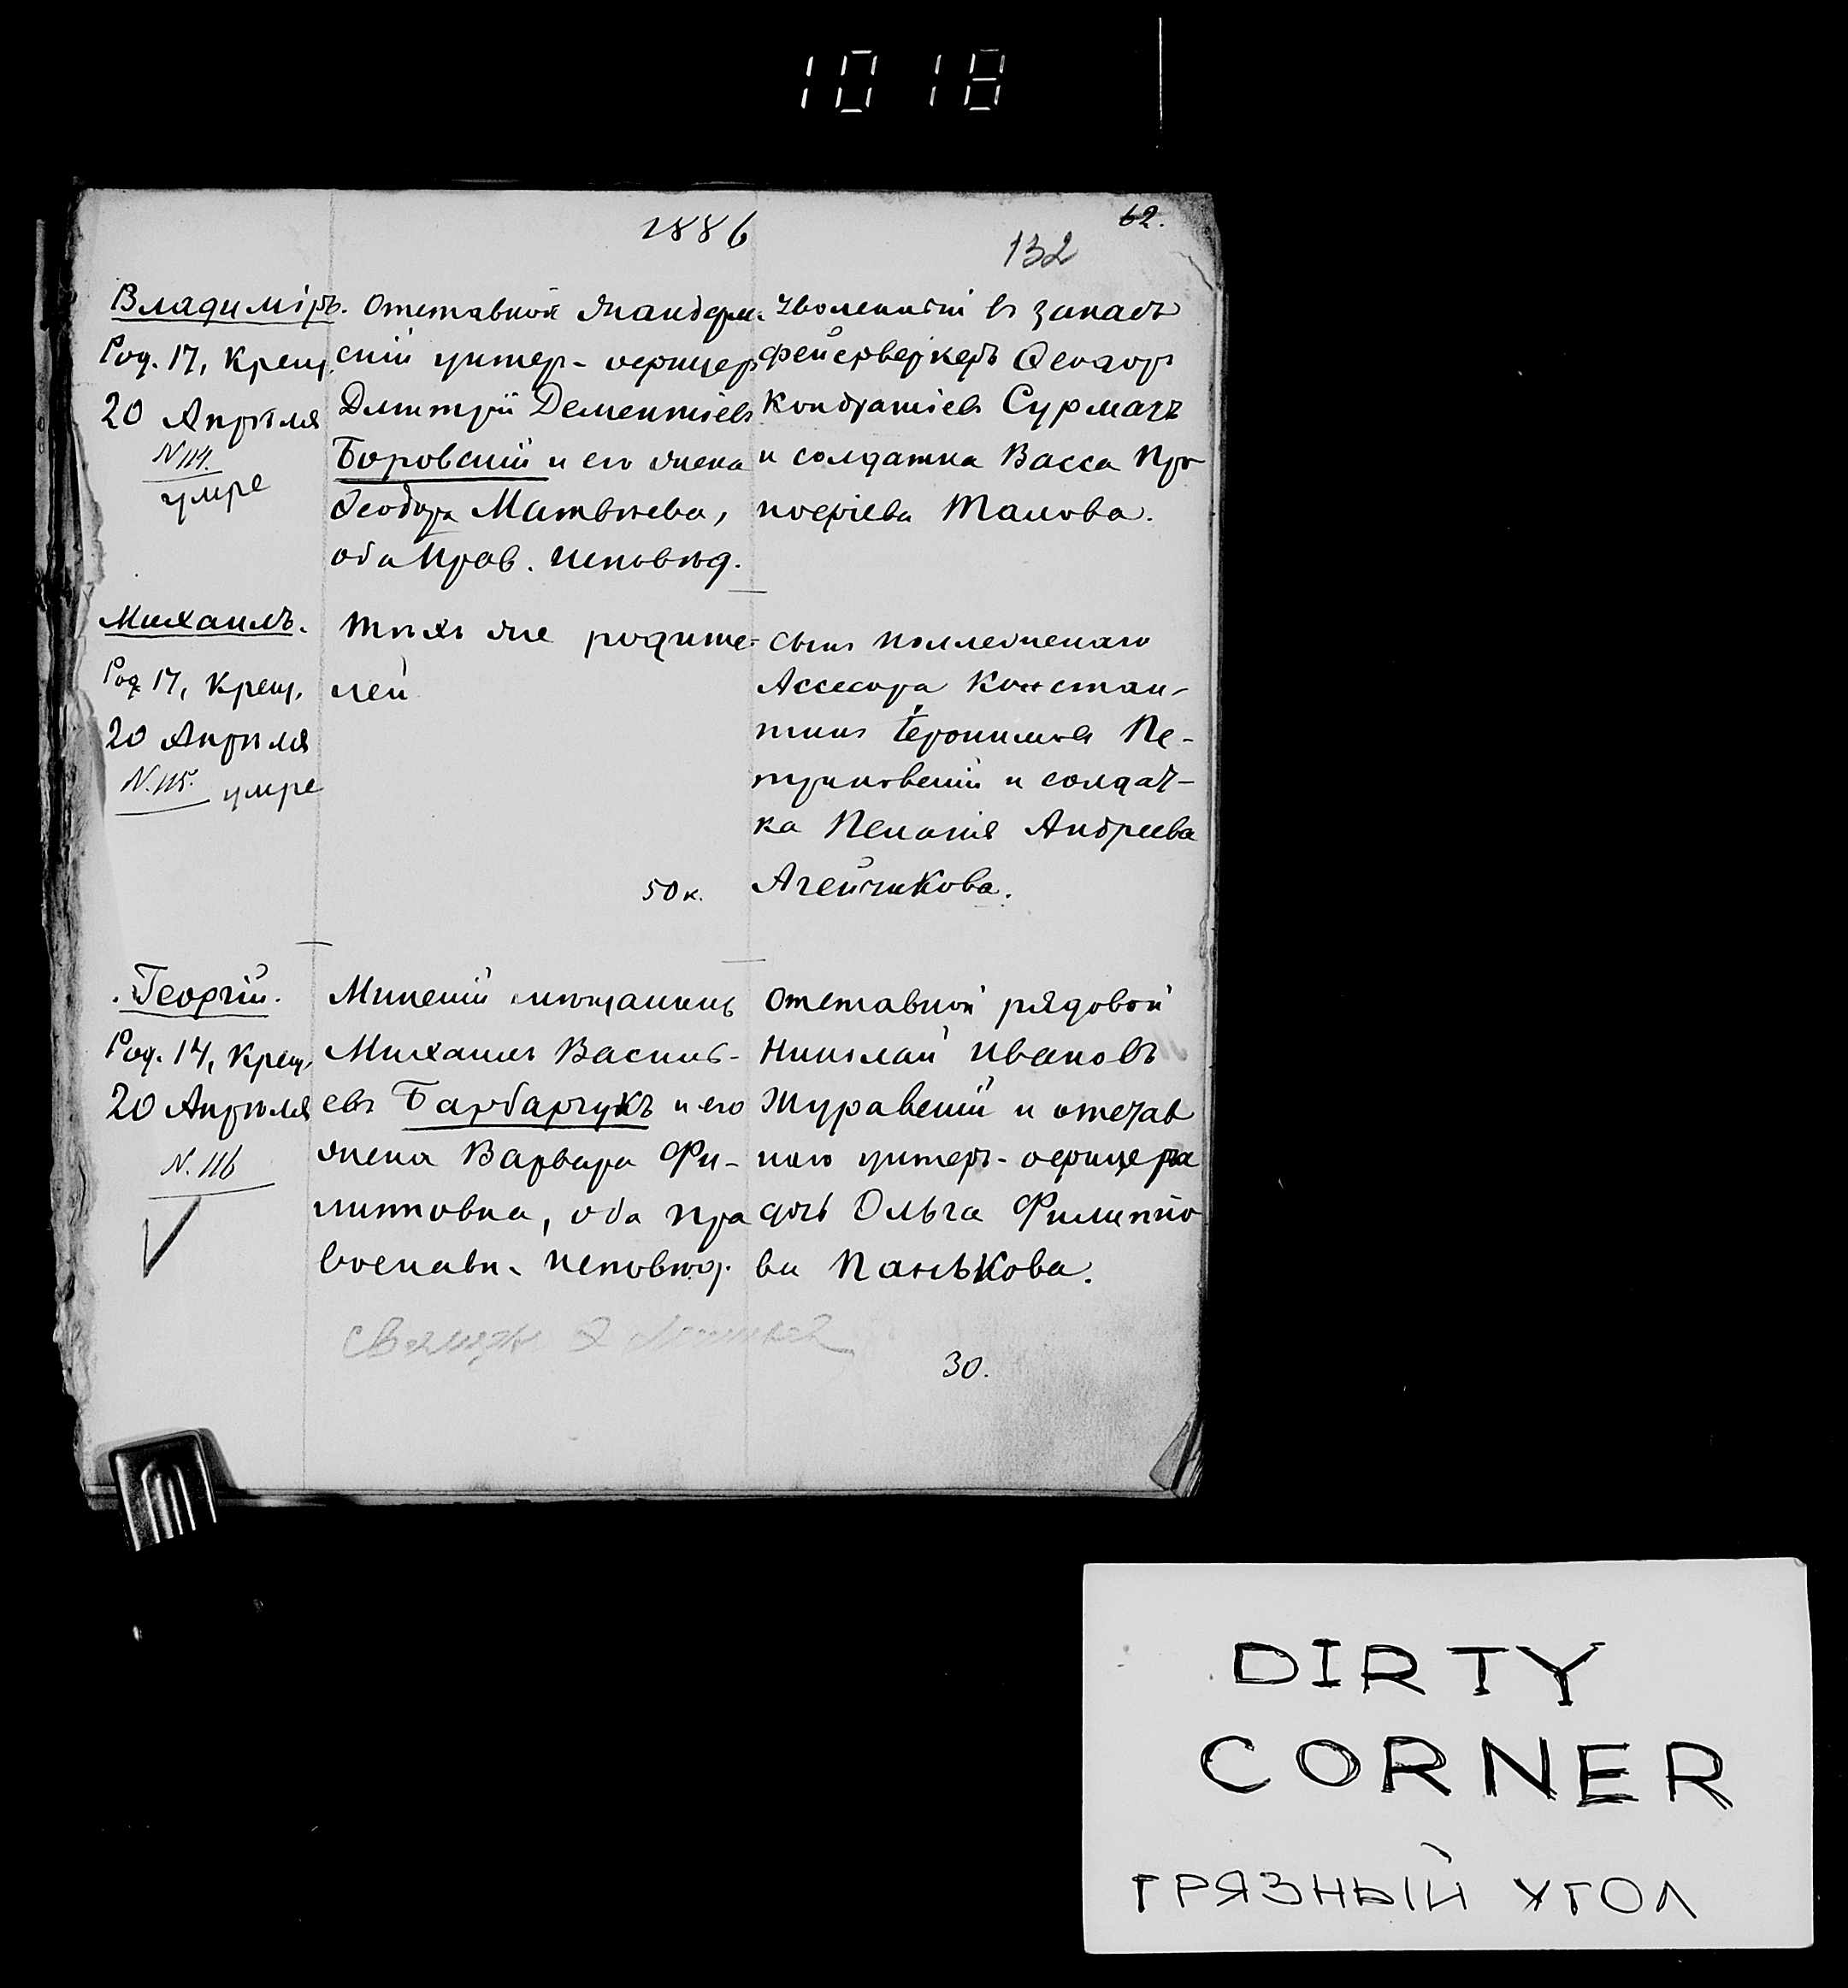 1018
1886
62.
132
Владиміръ.
Род. 17, Крещ.
20 Апрѣля
N 114.
умре
Отставной жандарм-
скій унтер-офицеръ
Дмитрій Дементіевъ
Боровскій и его жена
Ѳеодора Матвѣева,
оба прав. исповѣд.
Уволенный въ запасъ
фейерверкеръ Ѳеодоръ
Кондратіевъ Сурмачъ
и солдатка Васса Про
кофіева
Михаилъ.
Род 17, Крещ.
20 Апрѣля
N. 115. умре
Тѣхъ же родите-
лей
50 к.
Сынъ Коллежскаго
Ассесора Констан-
тинъ Іеронимовъ Пе-
труковскій и солдат-
ка Пелагія Андреева
Агейчикова.
Георгій.
Род. 14, Крещ.
20 Апрѣля
N. 116
Минскій мѣщанинъ
Михаилъ Василь-
евъ Барбарчукъ и его
жена Варвара Фи-
липповна, оба пра
вославн. исповѣд.
Отставной рядовой
Николай Ивановъ
Журавскій и отстав
ного унтеръ-офицера
дочь Ольга Филиппо
ва Панькова.
30.
DIRTY
CORNER
ГРЯЗНЫЙ УГОЛ